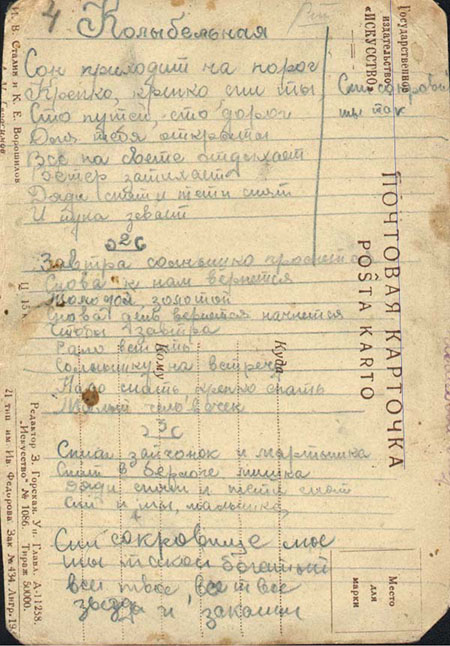 4
Колыбельная
Сон приходит на порог
Крепко, крепко спи ты
Сто путей, сто дорог
Для тебя открыты
Всё на свете отдыхает
Ветер затихает
Дяди спят и тёти спят
И луна зевает
2 С
Завтра солнышко проснется
Снова к нам вернется
Молодой золотой
Новый день вернется начнется
Чтобы завтра
Рано встать
Солнышку на встречу
Надо спать крепко спать
Милый человечек
3 С
Спит зайчонок и мартышка
Спит в берлоге мишка
Дяди спят и тёти спят
Спи и ты, малышка,
Спи сокровище мое
ты такой богатый
всё твое, всё твое
звезды и закаты
Спи
ты так
Государственное
издательство
„ИСКУССТВО“
ПОЧТОВАЯ КАРТОЧКА
POŜTA KARTO
Куда
Кому
Место
для
марки
И. В. Сталин и К. Е. Ворошилов
Редактор З. Горская. Уп. Главл. А-11258.
„Искусство“ № 1086. Тираж 50000.
21 тип. им. Ив. Федорова. Зак. № 434. Лнгр. 19